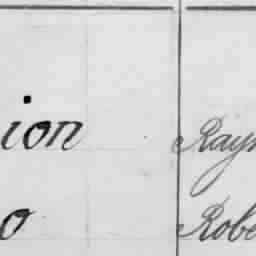 ion Rayn
o Robe